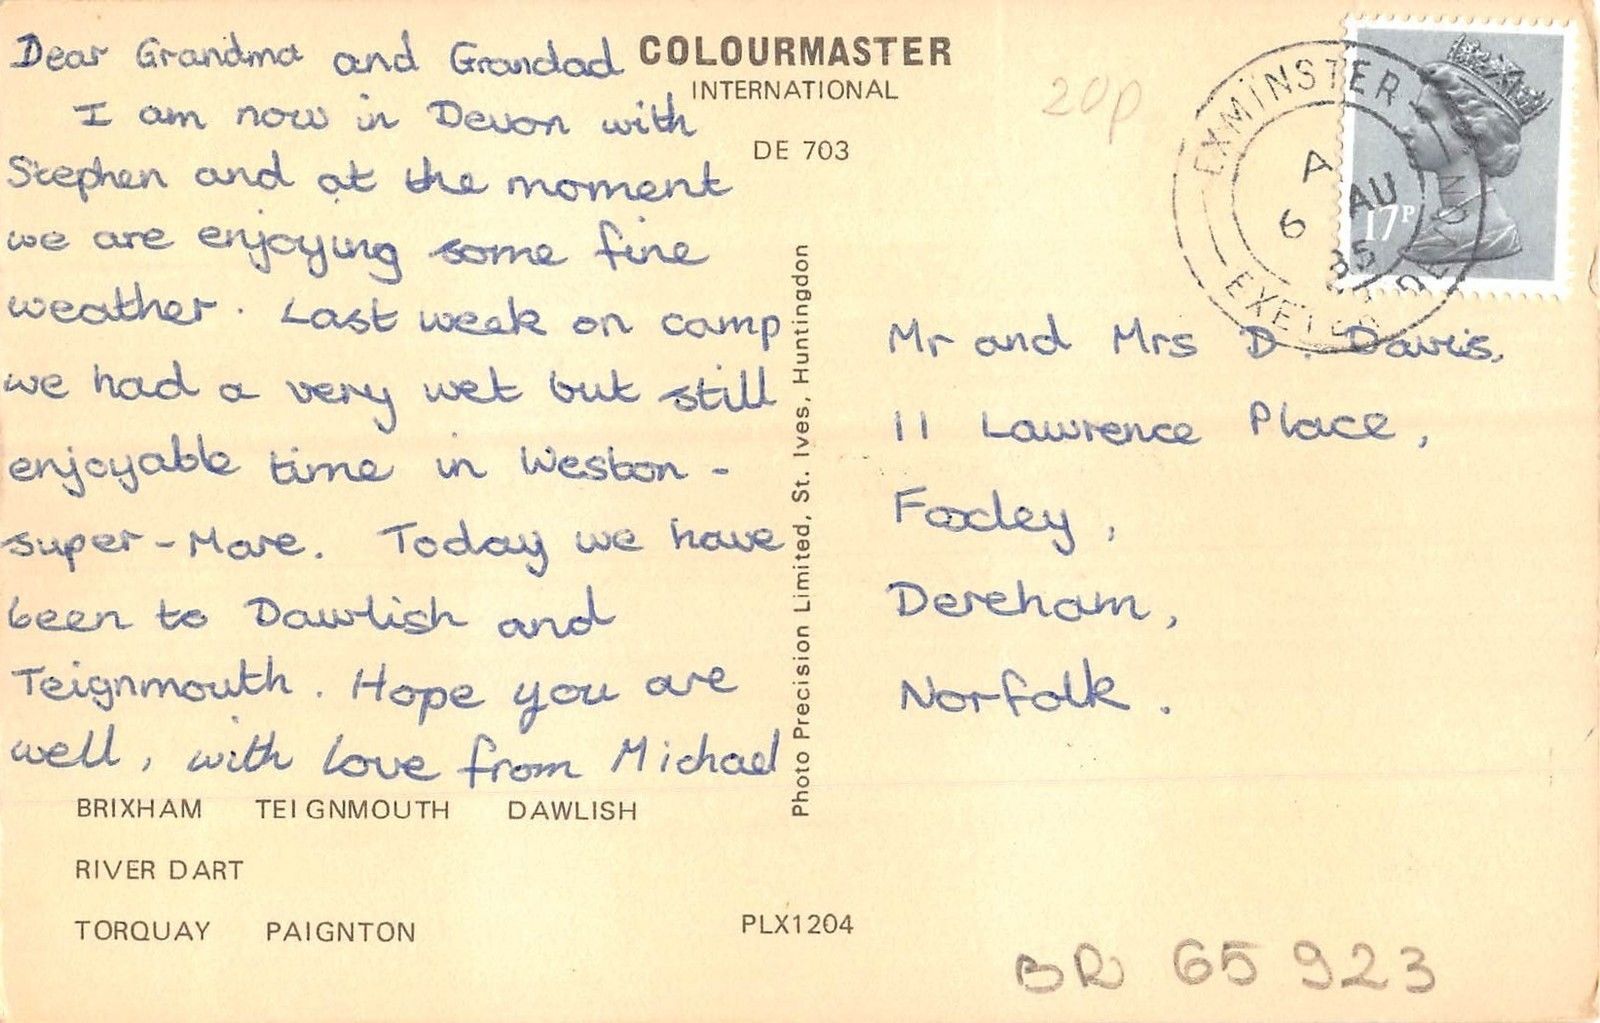 Dear Grandma and Grandad
I am now in Devon with
Stephen and at the moment
we are enjoying some fine
weather. Last week on camp
we had a very wet but still
enjoyable time in Weston -
super-Mare. Today we have
been to Dawlish and
Teignmouth. Hope you are
well, with love from Michael
BRIXHAM TEIGNMOUTH DAWLISH
RIVER DART
TORQUAY PAIGNTON
COLOURMASTER
INTERNATIONAL
DE 703
Photo Precision Limited, St. Ives, Huntingdon
PLX1204
20p
EXMINSTER
A
6 AU
85
EXETER DEVON
17P
Mr and Mrs D. Davis,
11 Lawrence Place,
Foxley,
Dereham,
Norfolk.
BR 65 923